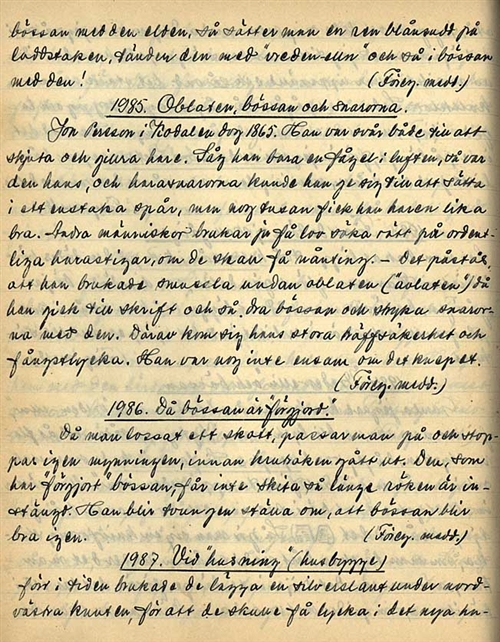 bössan med den elden, så sätter man en ren blånsudd på
laddstaken, tänder den med "vreden-elin" och så i bössan
med den! (Föreg. medd.)
1985. Oblaten, bössan och snarorna.
Jon Persson i Kodalen dog 1865. Han var svår både till att
skjuta och giura hare. Såg han bara en fågel i luften, så var
den hans, och harasnarorna kunde han ge sig till att sätta
i ett enstaka spår, men nog tusan fick han haren lika
bra. Andra människor brukar ju få lov söka rätt på ordent-
liga harastigar, om de skall få nånting. – Det påstås,
att han brukade smussla undan oblaten ("avlaten") då
han gick till skrift och så dra bössan och stryka snaror-
na med den. Därav kom sig hans stora träffsäkerhet och
fångstlycka. Han var nog inte ensam om det knepet.
(Föreg. medd.)
1986. Då bössan är "förgjord."
Då man lossat ett skott, passar man på och stop-
par igen mynningen, innan krutröken gått ut. Den, som
har "förgjort" bössan, får inte skita så länge röken är in-
stängd. Han blir tvungen ställa om, att bössan blir
bra igen. (Föreg. medd.)
1987. Vid "husning" (husbygge)
förr i tiden brukade de lägga en silverslant under nord-
västra knuten, för att de skulle få lycka i det nya hu-